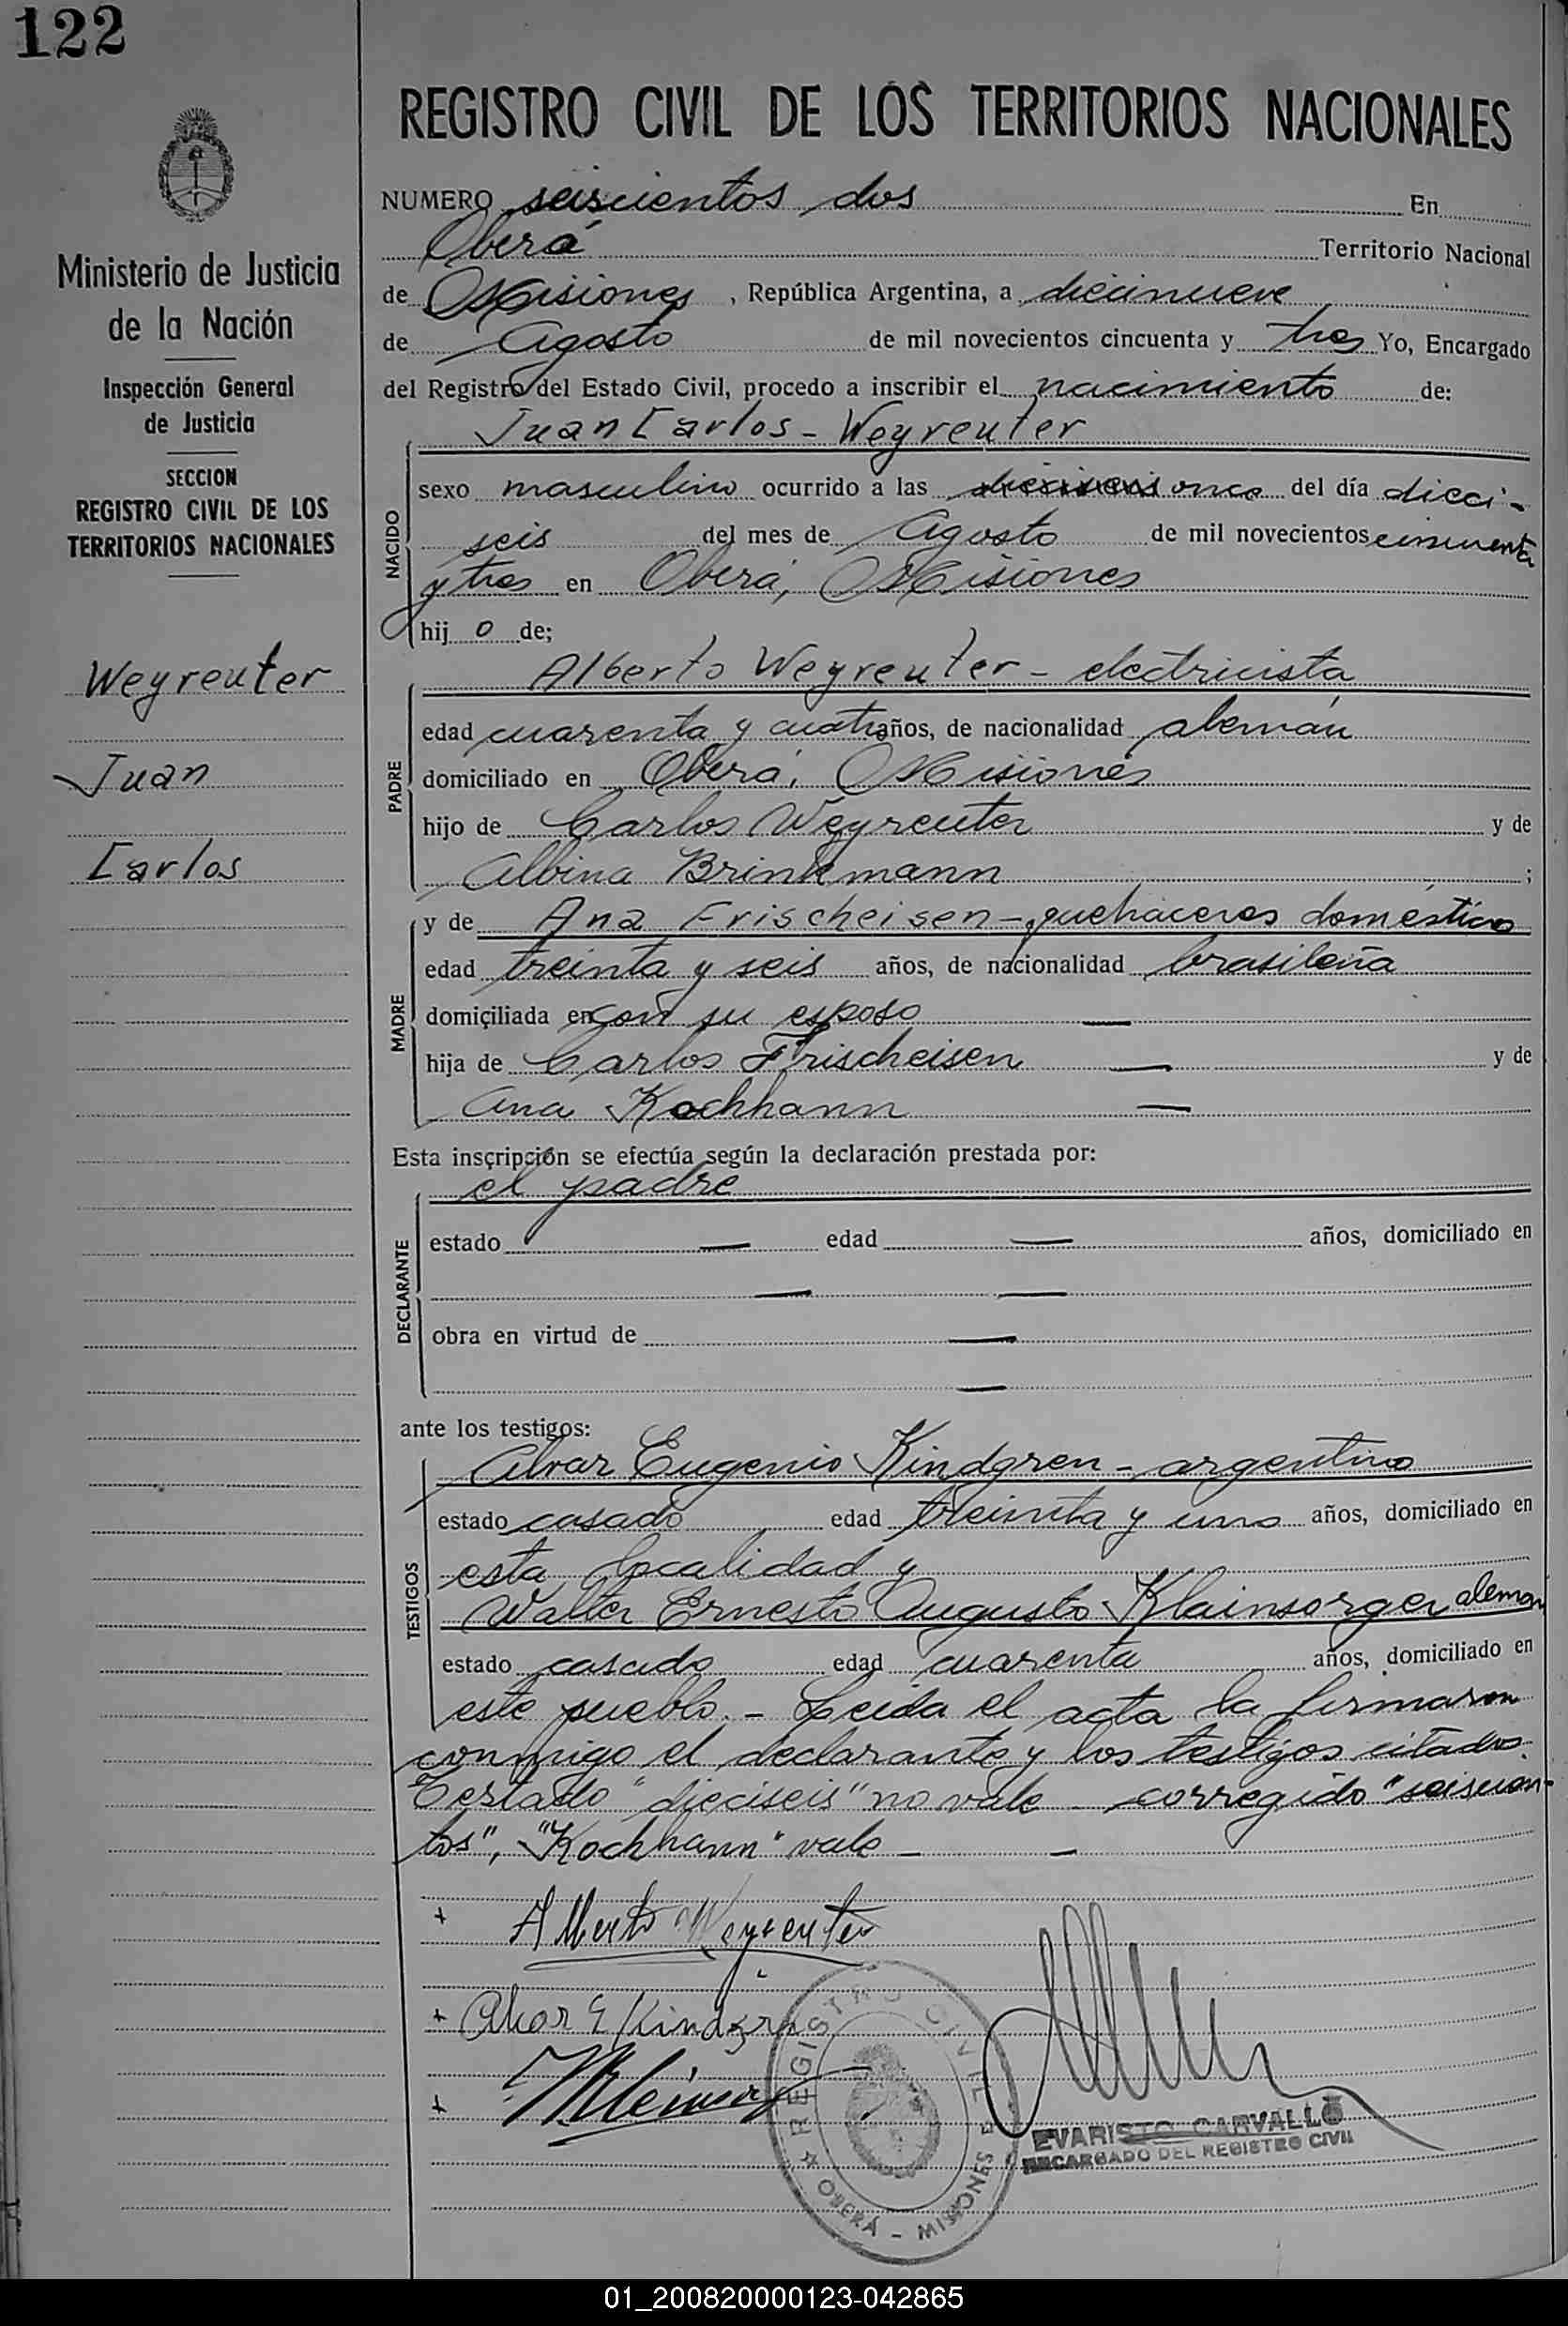 122
REGISTRO CIVIL DE LOS TERRITORIOS NACIONALES
Ministerio de Justicia
de la Nación
Inspección General
de Justicia
SECCION
REGISTRO CIVIL DE LOS
TERRITORIOS NACIONALES
Weyreuter
Juan
Carlos
NUMERO seiscientos dos En
Oberá Territorio Nacional
de Misiones, República Argentina, a diecinueve
de Agosto de mil novecientos cincuenta y tres Yo, Encargado
del Registro del Estado Civil, procedo a inscribir el nacimiento de:
Juan Carlos - Weyreuter
NACIDO
sexo masculino ocurrido a las dieciseis once del día dieci-
seis del mes de Agosto de mil novecientos cincuenta
y tres en Oberá, Misiones
hij o de;
Alberto Weyreuter - electricista
PADRE
edad cuarenta y cuatro años, de nacionalidad alemán
domiciliado en Oberá, Misiones
hijo de Carlos Weyreuter y de
Albina Brinkmann ;
y de Ana Frischeisen - quehaceres domésticos
MADRE
edad treinta y seis años, de nacionalidad brasileña
domiciliada en con su esposo —
hija de Carlos Frischeisen — y de
Ana Kochhann —
Esta inscripción se efectúa según la declaración prestada por:
el padre
DECLARANTE
estado — edad — años, domiciliado en
— —
obra en virtud de —
—
ante los testigos:
Alvar Eugenio Kindgren - argentino
TESTIGOS
estado casado edad treinta y uno años, domiciliado en
esta localidad y
Walter Ernesto Augusto Klainsorger aleman
estado casado edad cuarenta años, domiciliado en
este pueblo. - Leida el acta la firmaron
conmigo el declarante y los testigos citados.
Testado "dieciseis" no vale - corregido "seiscien-
tos", "Kochhann" vale — —
+ Alberto Weyreuter
+ Alvar E Kindgren
+
REGISTRO CIVIL
OBERÁ - MISIONES
EVARISTO CARVALLO
ENCARGADO DEL REGISTRO CIVIL
01_200820000123-042865